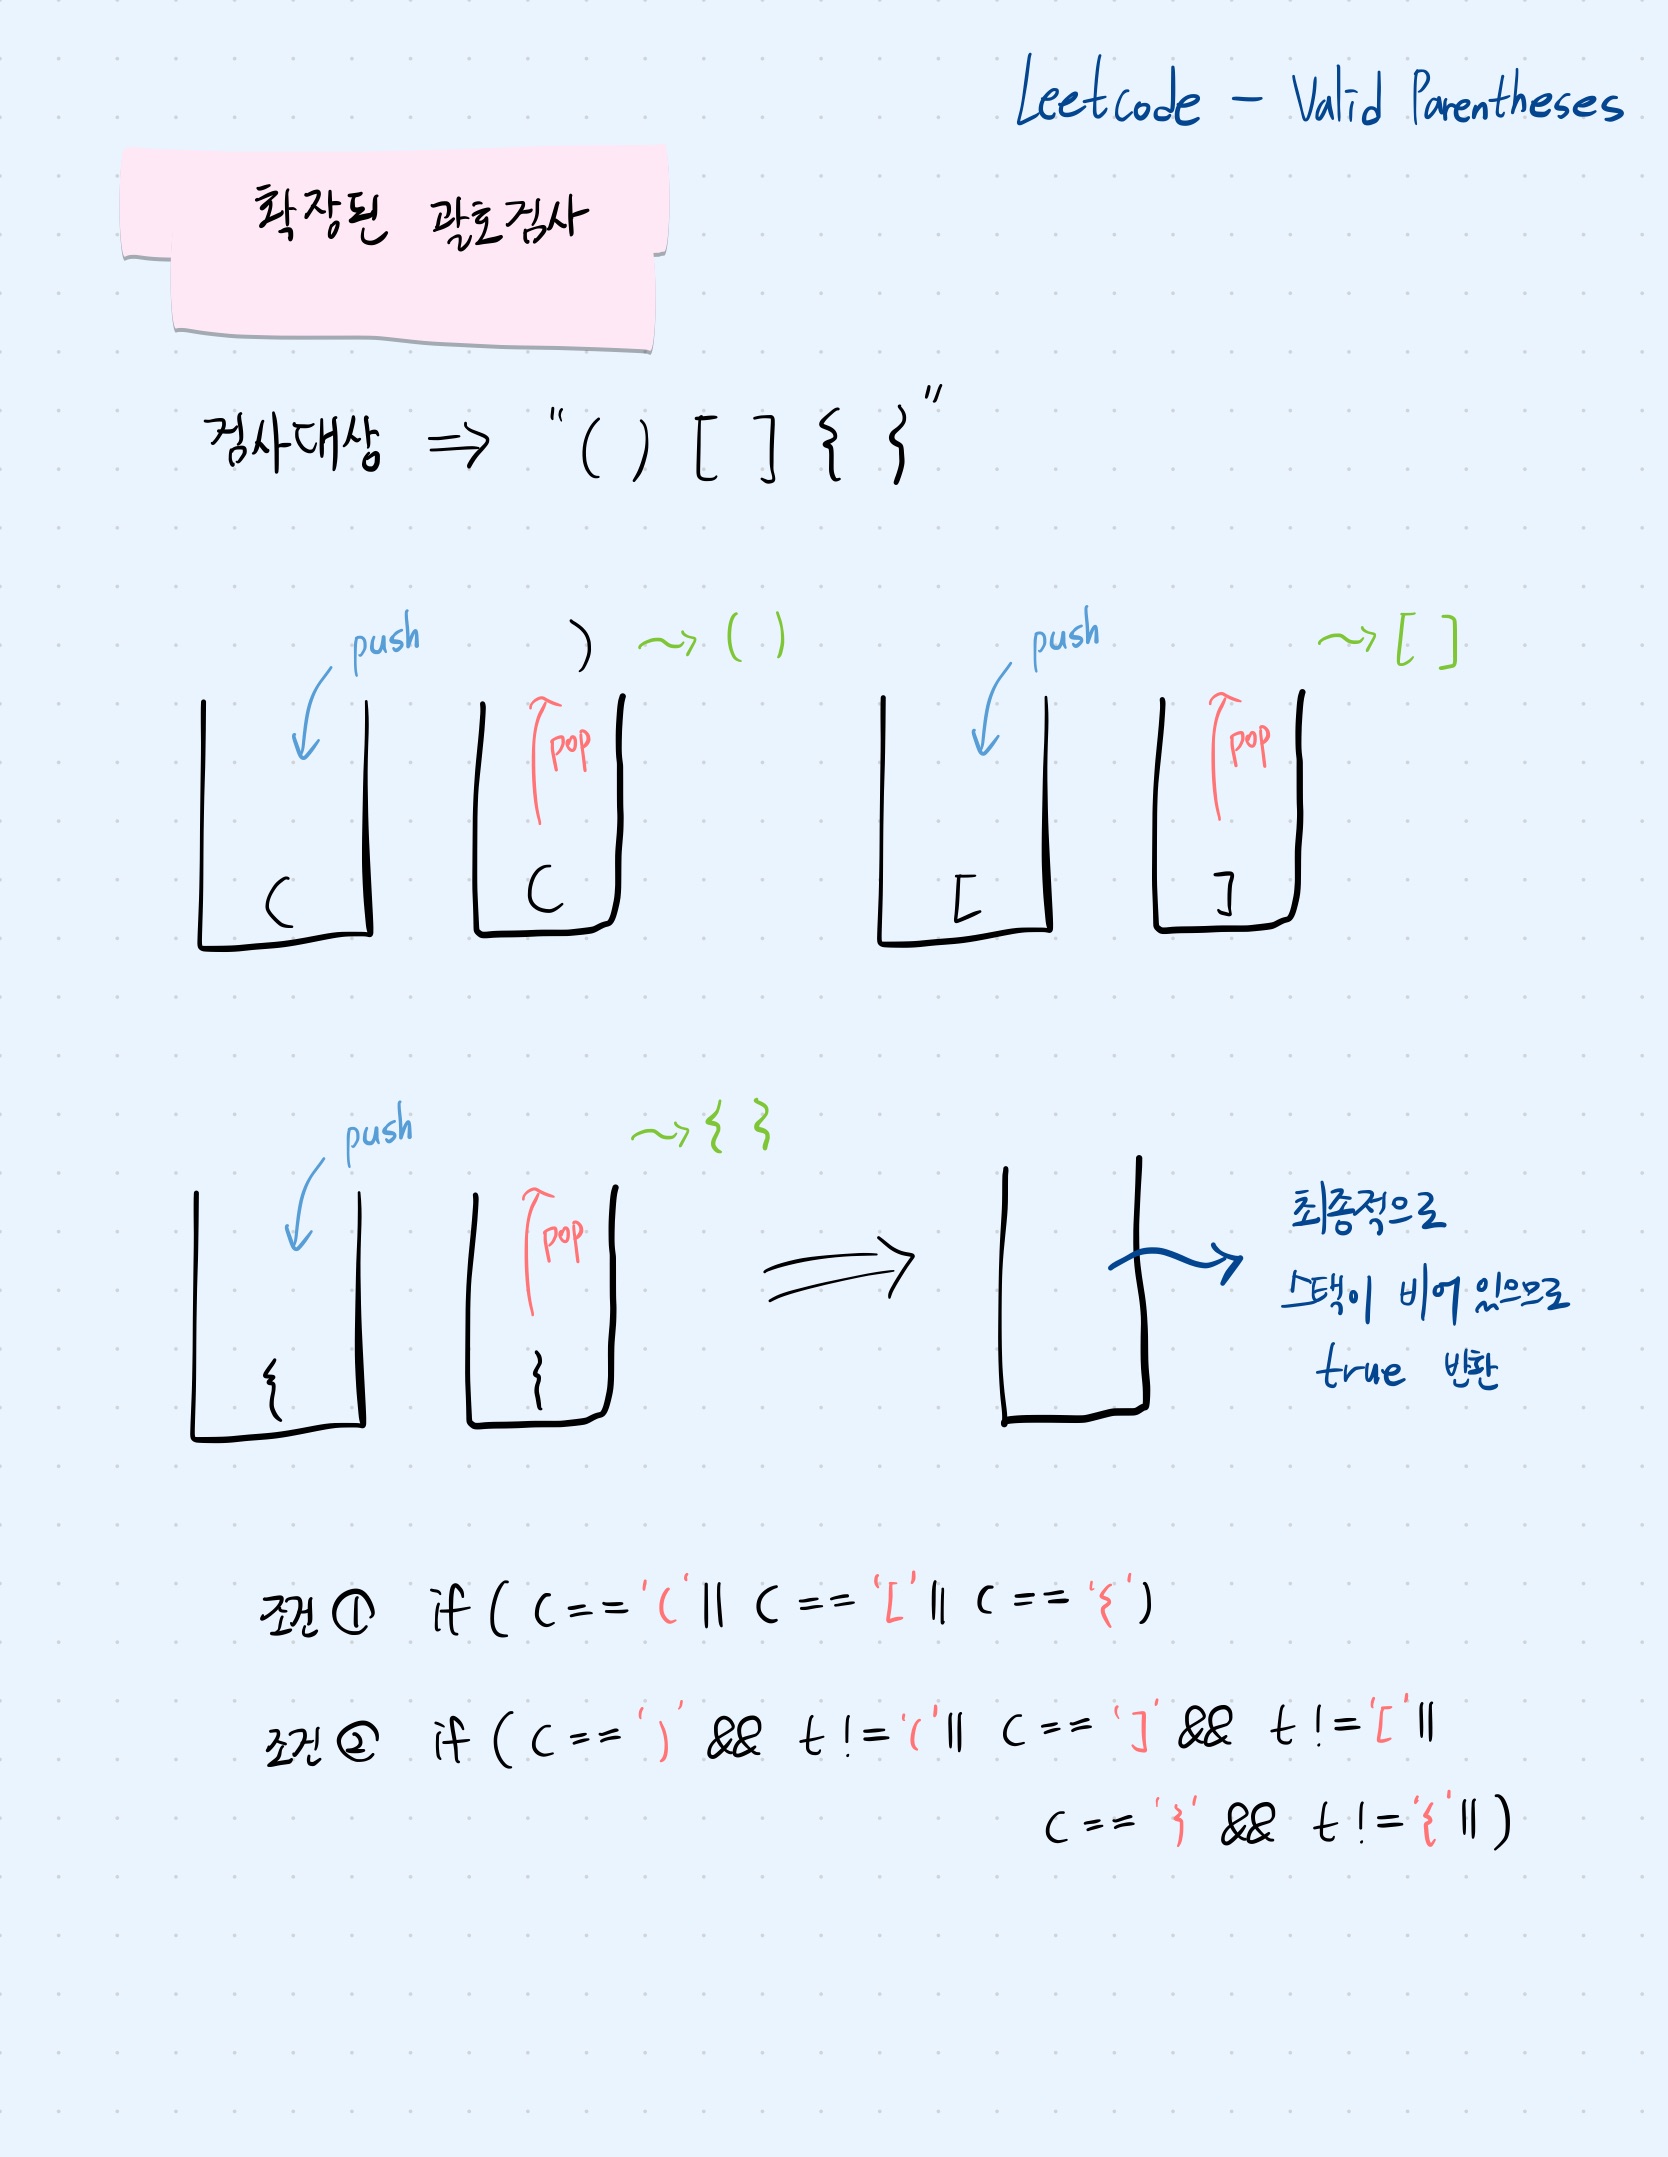 Leetcode - Valid Parentheses
확장된 괄호검사
검사대상 ⇒ "( ) [ ] { }"
push
) → ( )
pop
(
(
push
→ [ ]
pop
[
]
push
→ { }
pop
{
}
최종적으로
스택이 비어있으므로
true 반환
조건 ① if ( c == '(' || c == '[' || c == '{' )
조건 ② if ( c == ')' && t != '(' || c == ']' && t != '[' ||
c == '}' && t != '{' || )